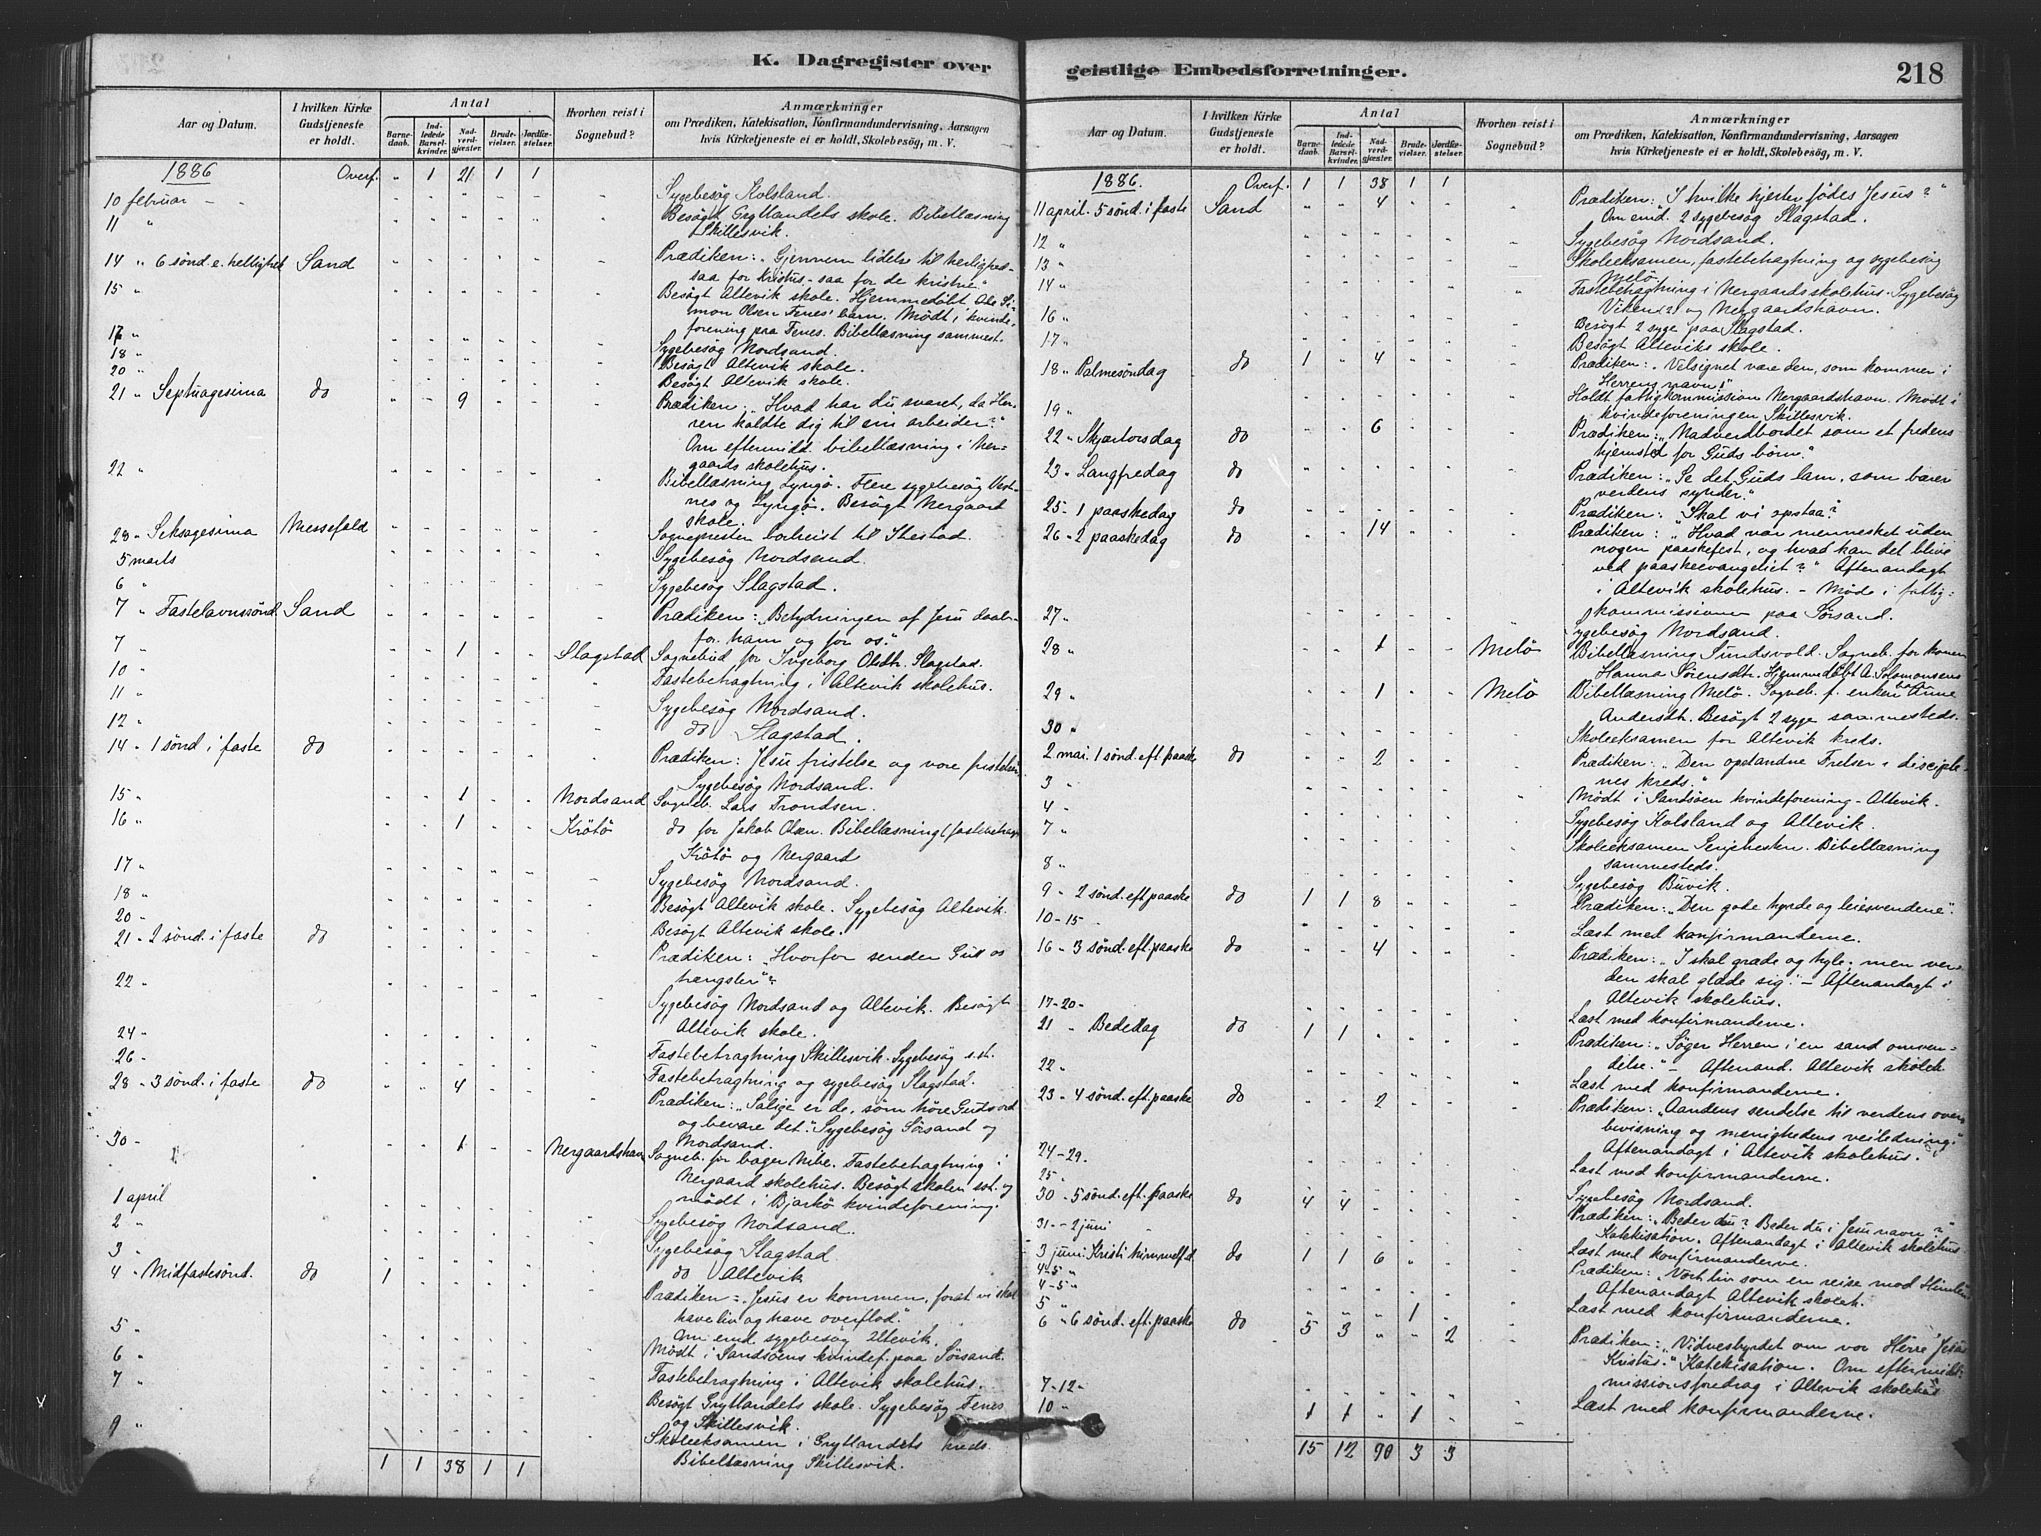 K. Dagregister over
geistlige Embedsforretninger.
218
Aar og Datum.
I hvilken Kirke Gudstjeneste er holdt.
Antal
Barnedaab.
Indledede Barselkvinder.
Nadverdgjæster.
Brudevielser.
Jordfæstelser.
Hvorhen reist i Sognebud?
Anmærkninger
om Prædiken, Katekisation, Konfirmandundervisning, Aarsagen
hvis Kirketjeneste ei er holdt, Skolebesög, m. V.
1886 Overf. " 1 21 1 1
10 februar - - Sygebesøg Kolsland.
11 " Besøgt Gryllandets skole. Bibellæsning
Skillesvik.
14 " 6 sønd. e. hellighet Sand Prædiken: "Gjennem lidelse til herlighed-
saa for Kristus - saa for de kristne."
15 " Besøgt Altevik skole. Hjemmedøbt Ole Si-
mon Olsen Fenes' barn. Mødt i kvinde-
forening paa Fenes. Bibellæsning sammest.
17 " Sygebesøg Nordsand.
18 " Besøgt Altevik skole.
20 " Besøgt Altevik skole.
21 " Septuagesima do 9 Prædiken: "Hvad har du svaret, da Her-
ren kaldte dig til sin arbeider?"
Om eftermidd. bibellæsning i Ner-
gaards skolehus.
22 " Bibellæsning Lyngø. Flere sygebesøg
nes og Lyngø. Besøgt Nergaard
skole.
28 " Seksagesima Messefald Sognepresten bortreist til Ibestad.
5 marts Sygebesøg Nordsand.
6 " Sygebesøg Slagstad.
7 " Fastelavnssønd. Sand Prædiken: "Betydningen af Jesu daab-
for ham og for os."
7 " 1 Slagstad Sognebud for Ingeborg Olsdtr. Slagstad.
10 " Fastebetragtning i Altevik skolehus.
11 " Sygebesøg Nordsand.
12 " do Slagstad.
14 " 1 sønd i faste do Prædiken: Jesu fristelse og vore fristelser
Sygebesøg Nordsand.
15 " 1 Nordsand Sogneb. Lars Trondsen.
16 " 1 Krøtø do for Jakob Olsen. Bibellæsning (fastebetragt.
Krøtø og Nergaard
17 " Sygebesøg Nordsand.
18 " Besøgt Altevik skole. Sygebesøg Altevik.
20 " Besøgt Altevik skole.
21 " 2 sønd. i faste do Prædiken: "Hvorfor sender Gud os
trængsler"?
22 " Sygebesøg Nordsand og Altevik. Besøgt
Altevik skole.
24 " Fastebetragtning Skillesvik. Sygebesøg s.st.
26 " Fastebetragtning og sygebesøg Slagstad.
28 " 3 sønd. i faste do " " 4 Prædiken: "Salige er de, som høre Guds ord
og bevare det." Sygebesøg Sørsand og
Nordsand.
30 " 1 Nergaardshavn Sogneb. for bager Nibe. Fastebetragtning i
Nergaard skolehus. Besøgt skolen sst. og
mødt i Bjarkø kvindeforening.
1 april Sygebesøg Nordsand.
2 " Sygebesøg Slagstad
3 " do Altevik
4 " Midfastesønd. do 1 Prædiken: "Jesus er kommen, forat vi skal
have liv og have overflod."
Om emd. sygebesøg Altevik.
5 " Mødt i Sandsøens kvindef. paa Sørsand.
6 " Fastebetragtning i Altevik skolehus.
7 " Besøgt Gryllandets skole. Sygebesøg Fenes
og Skillesvik.
9 " Skoleeksamen i Gryllandets kreds.
Bibellæsning Skillesvik.
1 1 38 1 1
Aar og Datum.
I hvilken Kirke Gudstjeneste er holdt.
Antal
Barnedaab.
Indledede Barselkvinder.
Nadverdgjæster.
Brudevielser.
Jordfæstelser.
Hvorhen reist i Sognebud?
Anmærkninger
om Prædiken, Katekisation, Konfirmandundervisning, Aarsagen
hvis Kirketjeneste ei er holdt, Skolebesög, m. V.
1886. Overf. 1 1 38 1 1
11 april. 5 sønd. i faste Sand " " 4 Prædiken: "I hvilke hjerter fødes Jesus?"
Om emd. 2 sygebesøg Slagstad.
12 " Sygebesøg Nordsand.
13 " Skoleeksamen, fastebetragtning og sygebesøg
Melø.
14 " Fastebetragtning i Nergaards skolehus. Sygebesøg
Viken (2) og Nergaardshavn.
16 " Besøgt 2 syge paa Slagstad.
17 " Besøgt Alteviks skole.
18 " Palmesøndag do 1 " 4 Prædiken: "Velsignet være den, som kommer i
Herrens navn!"
19 " Holdt fattigkommission Nergaardshavn. Mødt i
kvindeforeningen Skillesvik.
22 " Skjærtorsdag do 6 Prædiken: "Nadverdbordet som et fredens
hjemsted for Guds børn."
23 " Langfredag do Prædiken: "Se det Guds lam, som bærer
verdens synder."
25 - 1 paaskedag do Prædiken: "Skal vi opstaa?
26 - 2 paaskedag do 14 Prædiken: "Hvad var mennesket uden
nogen paaskefest, og hvad kan det blive
ved paaskeevangeliet?" Aftenandagt
i Altevik skolehus. - Møde i fattig-
kommissionen paa Sørsand.
27 " Sygebesøg Nordsand.
28 " 1 Melø Bibellæsning Sundsvold. Sogneb. for konen
Hanna Sørensdtr. Hjemmedøbt A. Salomonsens
29 " 1 Melø Bibellæsning Melø. Sogneb. f. enken Anne
Andersdt. Besøgt 2 syge sammesteds.
30 " Skoleeksamen for Altevik kreds.
2 mai. 1 sønd. eft. paaske do 2 Prædiken: "Den opstandne Frelser i disciple-
nes kreds."
3 " Mødt i Sandsøen kvindeforening - Altevik.
4 " Sygebesøg Kolsland og Altevik.
7 " Skoleeksamen Senjehesten. Bibellæsning
sammesteds.
8 " Sygebesøg Buvik.
9 - 2 sønd. eft. paaske do 1 1 8 Prædiken: "Den gode hyrde og leiesvendene".
10 - 15 " Læst med konfirmanderne.
16 - 3 sønd. eft. paaske do 4 Prædiken: "I skal græde og hyle; men ver-
den skal glæde sig." - Aftenandagt i
Altevik skolehus.
17 - 20 - Læst med konfirmanderne.
21 " Bededag do 1 1 Prædiken: "Søger Herren i en sand omven-
delse." - Aftenand. Altevik skoleh.
22 " Læst med konfirmanderne.
23 - 4 sønd. eft. paaske do 2 Prædiken: "Aandens sendelse til verdens over-
bevisning og menighedens veiledning."
Aftenandagt i Altevik skolehus.
24 - 29. Læst med konfirmanderne.
25 " Sygebesøg Nordsand.
30 - 5 sønd. eft. paaske do 4 4 Prædiken: "Beder du? Beder du i Jesu navn?"
Katekisation. Aftenandagt i Altevik skolehus.
31 - 2 juni Læst med konfirmanderne.
3 juni. Kristi himmelf.d. do 1 1 6 Prædiken: "Vort liv som en reise mod Himlen
Aftenandagt Altevik skoleh.
4-5 "
4 - 5 " Læst med konfirmanderne.
5 " 1
6 " 6 sønd. eft. paaske do 5 3 " " 2 Prædiken: "Vidnesbyrdet om vor Herre Jesus
Kristus." Katekisation. Om eftermidd.
missionsforedrag i Altevik skolehus
7 - 12 - Læst med konfirmanderne.
10 " 1 1 " 1
15 12 90 3 3